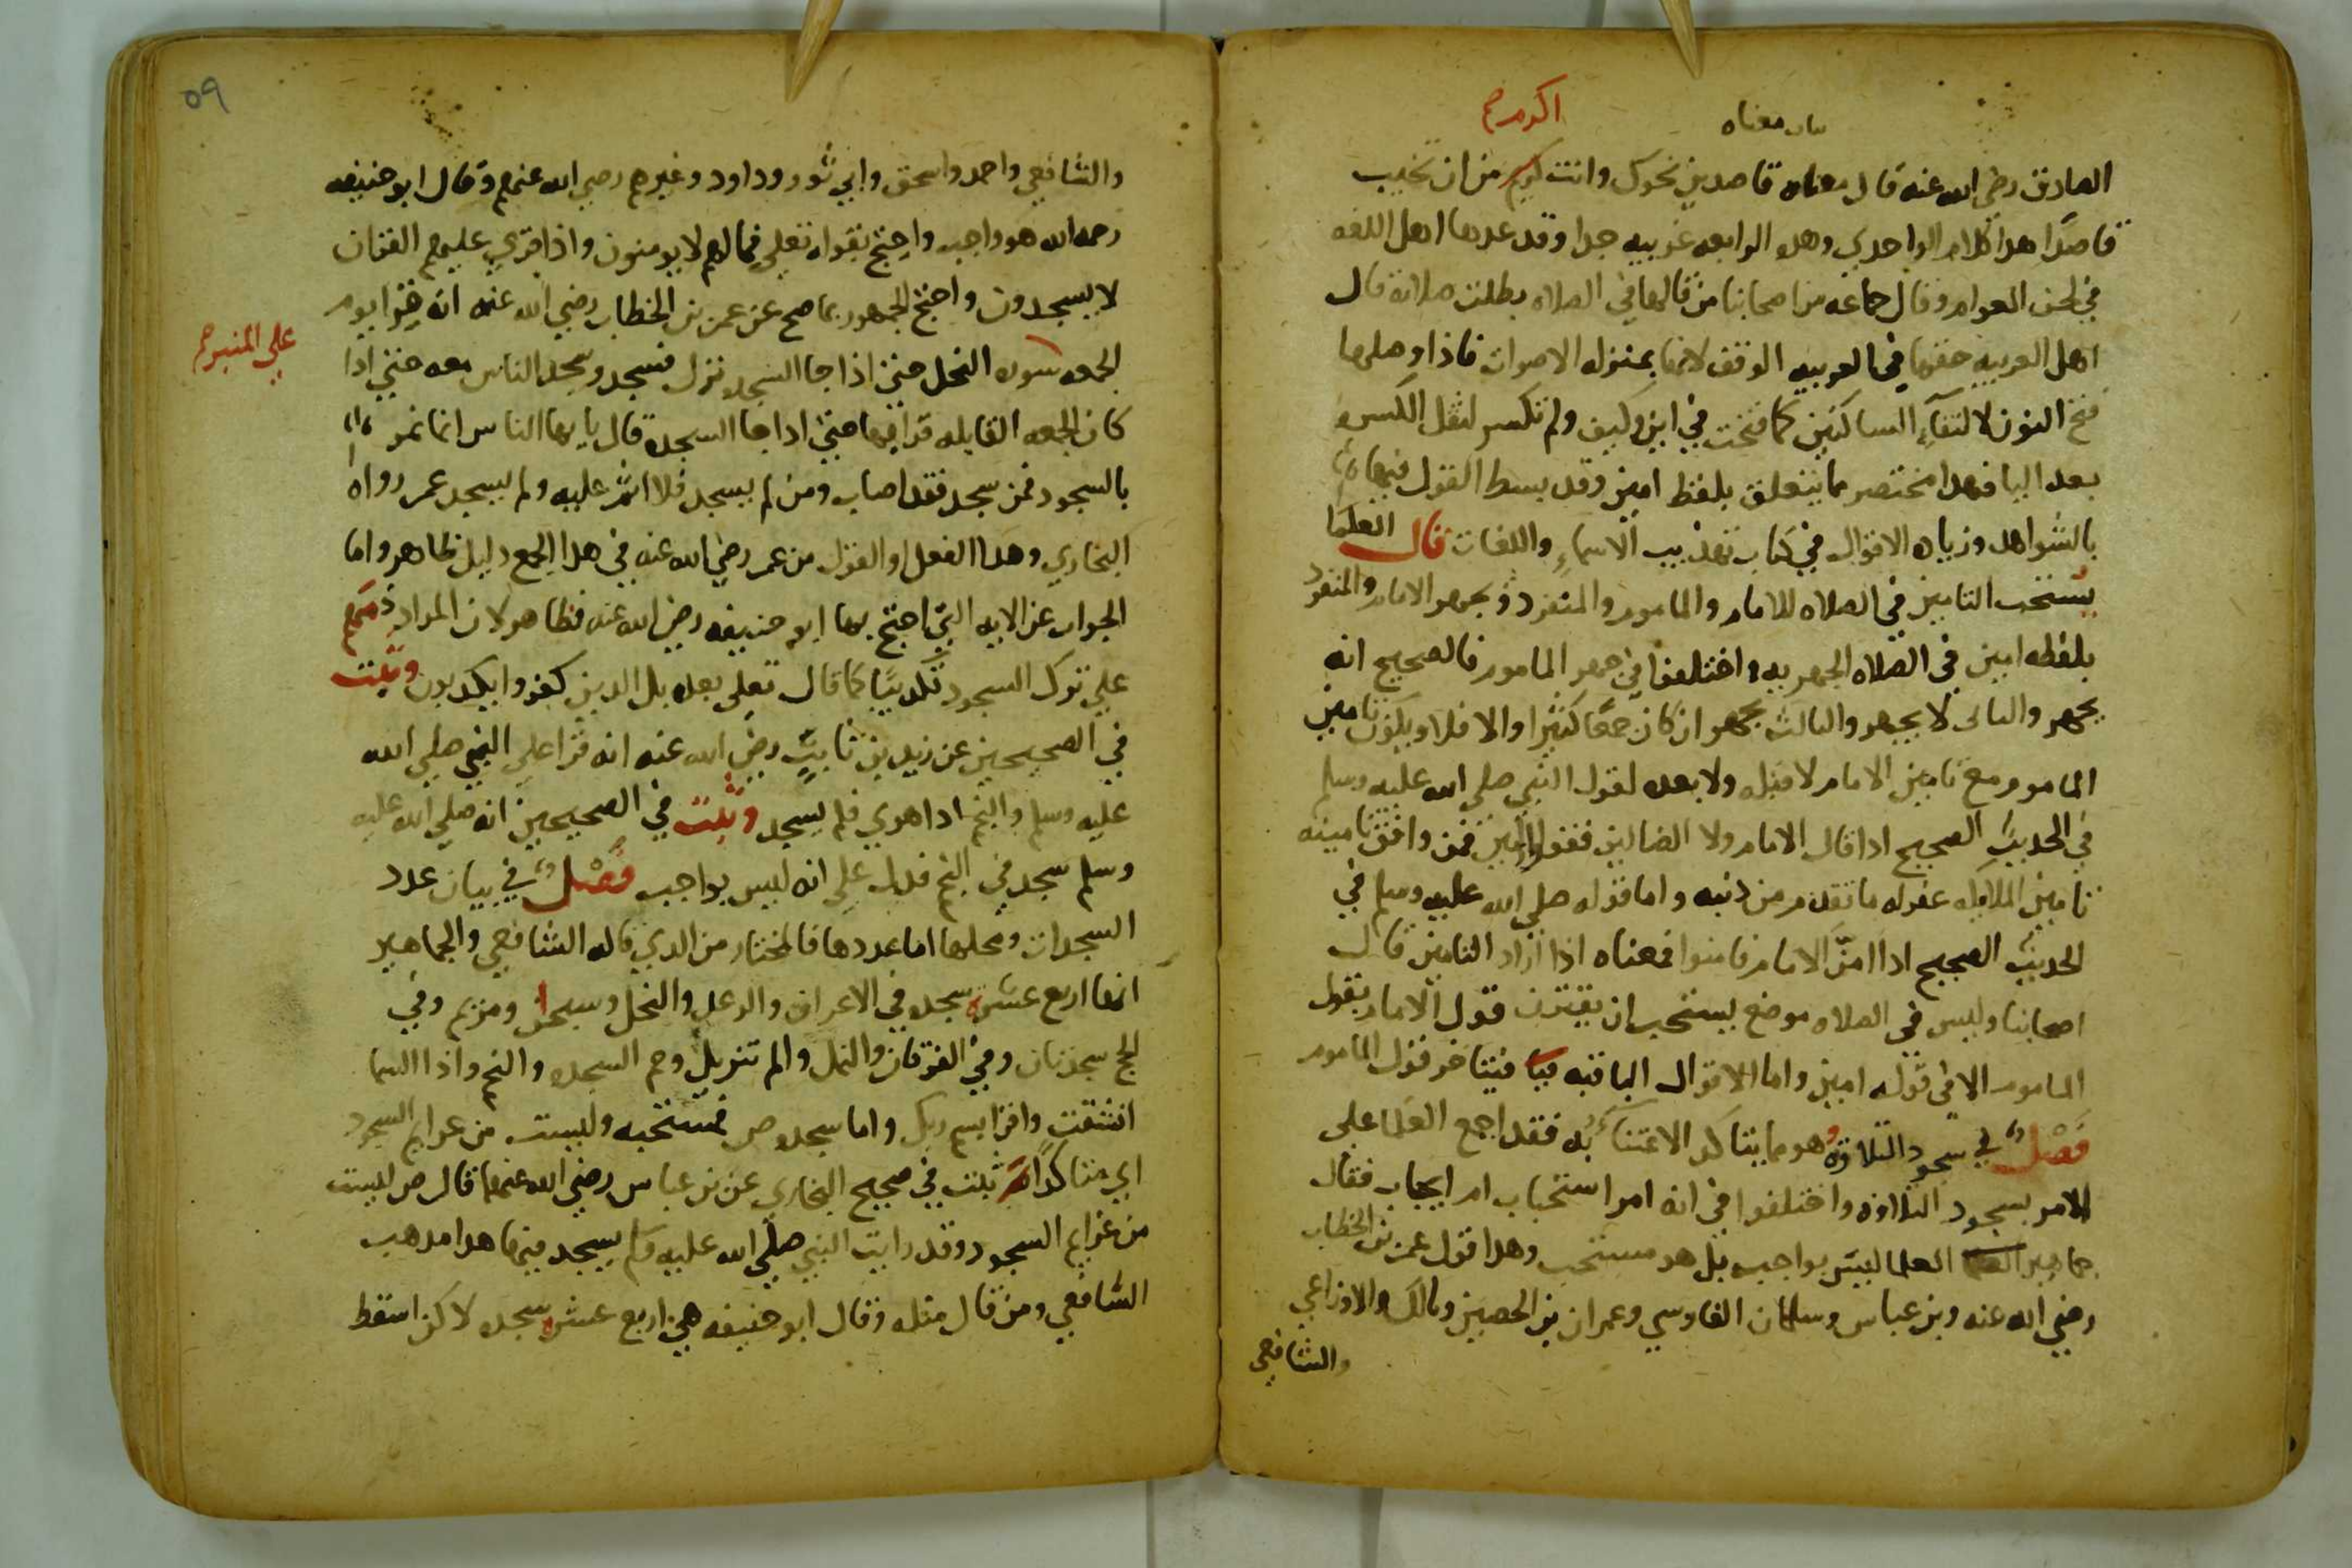 بيان معناه
اكرم صح
الصادق رضي الله عنه قال معناه قاصدين نحوك وانت كريم من ان تخيب
قاصدا هدا كلام الواحدي وهده الرابعه غريبه جدا وقد عدها اهل اللغه
في لحن العوام وقال جماعه من اصحابنا من قالها في الصلاه بطلت صلاته قال
اهل العربيه حقها في العربيه الوقف لانها بمنزله الاصوات فاذا وصلها
فتح النون لالتقآءِ الساكنين كما فتحت في اين وكيف ولم تكسر لثقل الكسره
بعد اليا فهدا مختصر مما يتعلق بلفظ امين وقد بسط القول فيها
بالشواهد وزياده الاقوال في كتاب تهذيب الاسماءِ واللغات قال العلما
يستحب التامين في الصلاه للامام والماموم والمنفرد ويجهر الامام والمنفرد
بلفظه امين في الصلاه الجهريه واختلفوا في جهر الماموم فالصحيح انه
يجهر والثانى لا يجهر والثالث يجهر ان كان جمعًا كثيرا والا فلا ويكون تامين
الماموم مع تامين الامام لا قبله ولا بعده لقول النبي صلى الله عليه وسلم
في الحديث الصحيح ادا قال الامام ولا الضالين فقولوا امين فمن وافق تامينه
تامين الملايكه غفر له ما تقدم من ذنبه واما قوله صلى الله عليه وسلم في
الحديث الصحيح ادا امنَّ الامام فامنوا فمعناه اذا اراد التامين قال
اصحابنا وليس في الصلاه موضع يستحب ان يقترن قول الامام بقول
الماموم الا في قوله امين واما الاقوال الباقيه فيتاخر قول الماموم
فَصْل في سجود التلاوة وهو مما يتاكد الاعتناءُ به فقد اجمع العلما على
الامر بسجود التلاوه واختلفوا في انه امر استحباب ام ايجاب فقال
جماهير العلما ليس بواجب بل هو مستحب وهدا قول عمر بن الخطاب
رضي الله عنه وبن عباس وسلمان الفارسي وعمران بن الحصين ومالك والاوزاعي
والشافعي
٥٩
والشافعي واحمد واسحق وابي ثور وداود وغيرهم رضي الله عنهم وقال ابو حنيفه
رحمه الله هو واجب واحتج بقوله تعلى فما لهم لا يومنون واذا قرى عليهم القران
لا يسجدون واحتج الجمهور بما صح عن عمر بن الخطاب رضي الله عنه انه قرا يوم
الجمعه سوره النحل حتى اذا جا السجده نزل فسجد وسجد الناس معه حتى اذا
على المنبر صح
كان الجمعه القابله قرا بها حتى ادا جا السجدة قال يا يها الناس انما نمر
بالسجود فمن سجد فقد اصاب ومن لم يسجد فلا اثم عليه ولم يسجد عمر رواه
البخاري وهدا الفعل والقول من عمر رضي الله عنه في هدا الجمع دليل ظاهر واما
الجواب عن الايه التي احتج بها ابو حنيفه رضي الله عنه فظاهر لان المراد ذمهم
على ترك السجود تكديبًا كما قال تعلى بعده بل الدين كفروا يكدبون وثبت
في الصحيحين عن زيد بن ثابتٍ رضي الله عنه انه قرا على النبي صلى الله
عليه وسلم والنجم ادا هوى فلم يسجد وثبت في الصحيحين انه صلى الله عليه
وسلم سجد في النجم فدل على انه ليس بواجب فَصْل في بيان عدد
السجدات ومحلها اما عددها فالمختار من الدي قاله الشافعي والجماهير
انها اربع عشرة سجده في الاعراف والرعد والنحل وسبحان ومريم وفي
الحج سجدتان وفي الفرقان والنمل والم تنزيل وحم السجده والنجم واذا السما
انشقت واقرا بسم ربك واما سجده ص فمستحبه وليست من عزايم السجود
اي متاكداته ثبت في صحيح البخاري عن بن عباس رضي الله عنهما قال ص ليست
من عزايم السجود وقد رايت النبي صلى الله عليه وسلم يسجد فيها هدا مدهب
الشافعي ومن قال مثله وقال ابو حنيفه هي اربع عشرة سجده لاكن اسقط